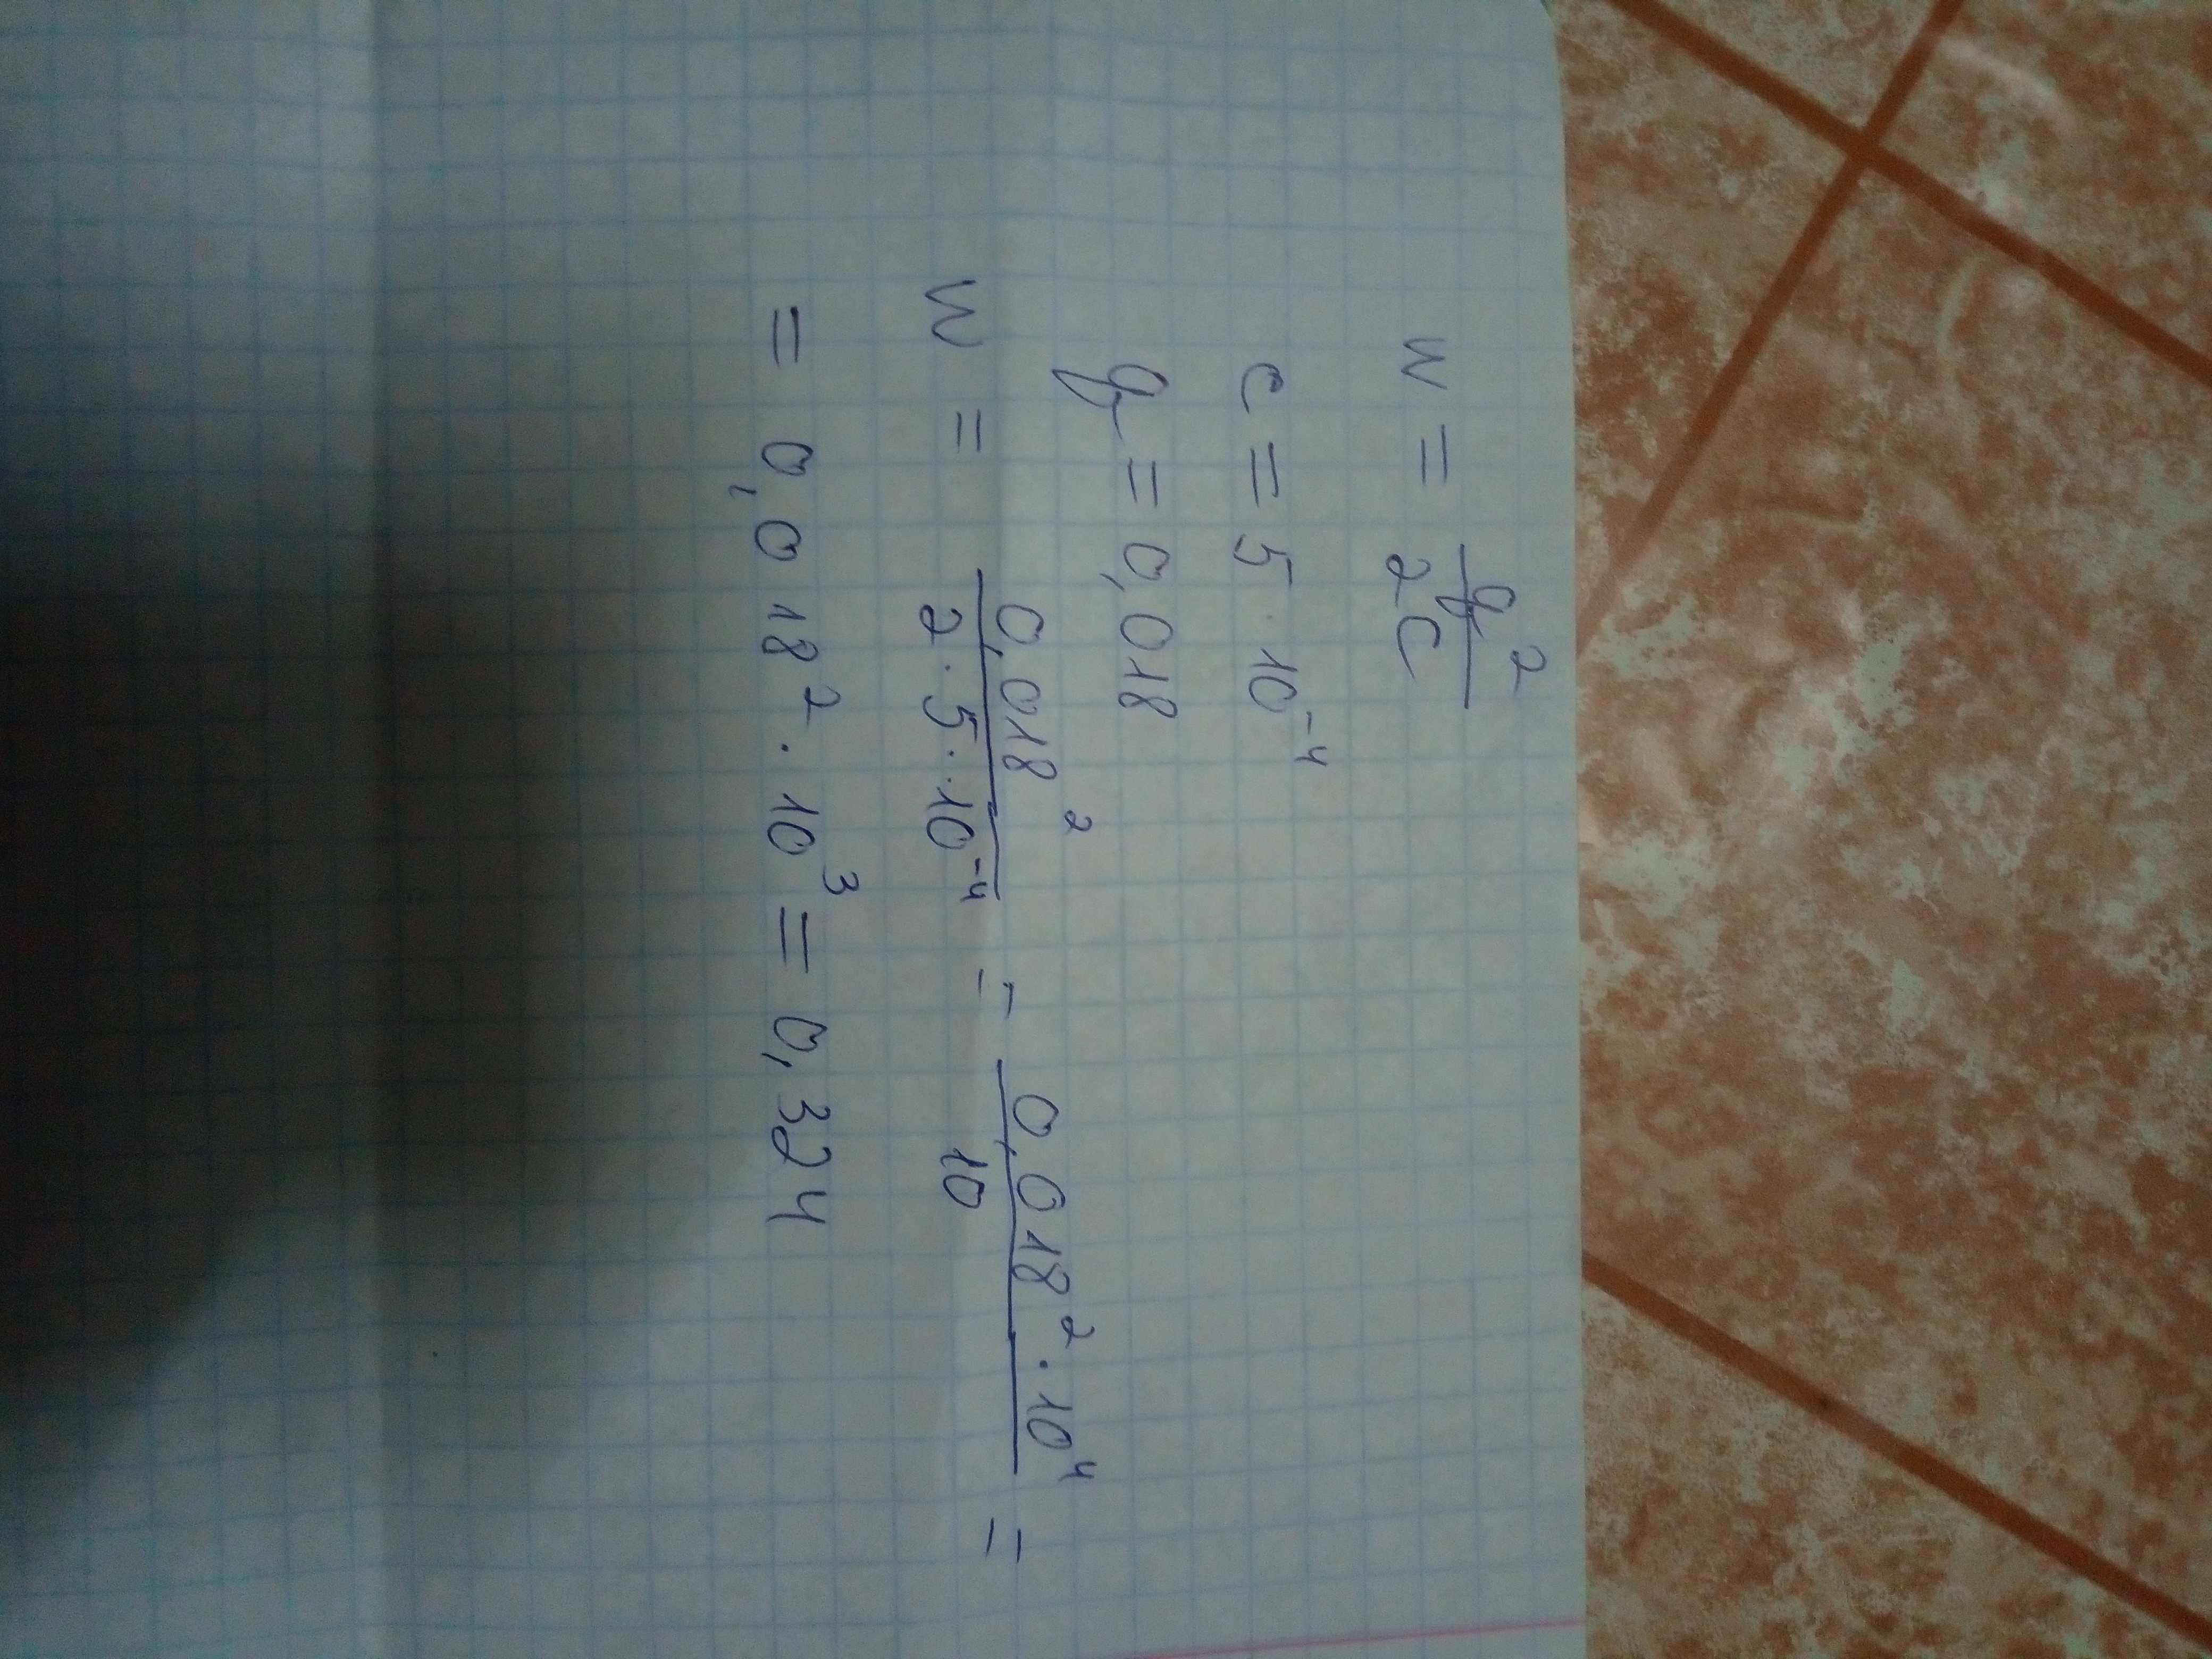 W = q² / 2C
C = 5 · 10⁻⁴
q = 0,018
W = 0,018² / 2 · 5 · 10⁻⁴ = 0,018² · 10⁴ / 10 =
= 0,018² · 10³ = 0,324